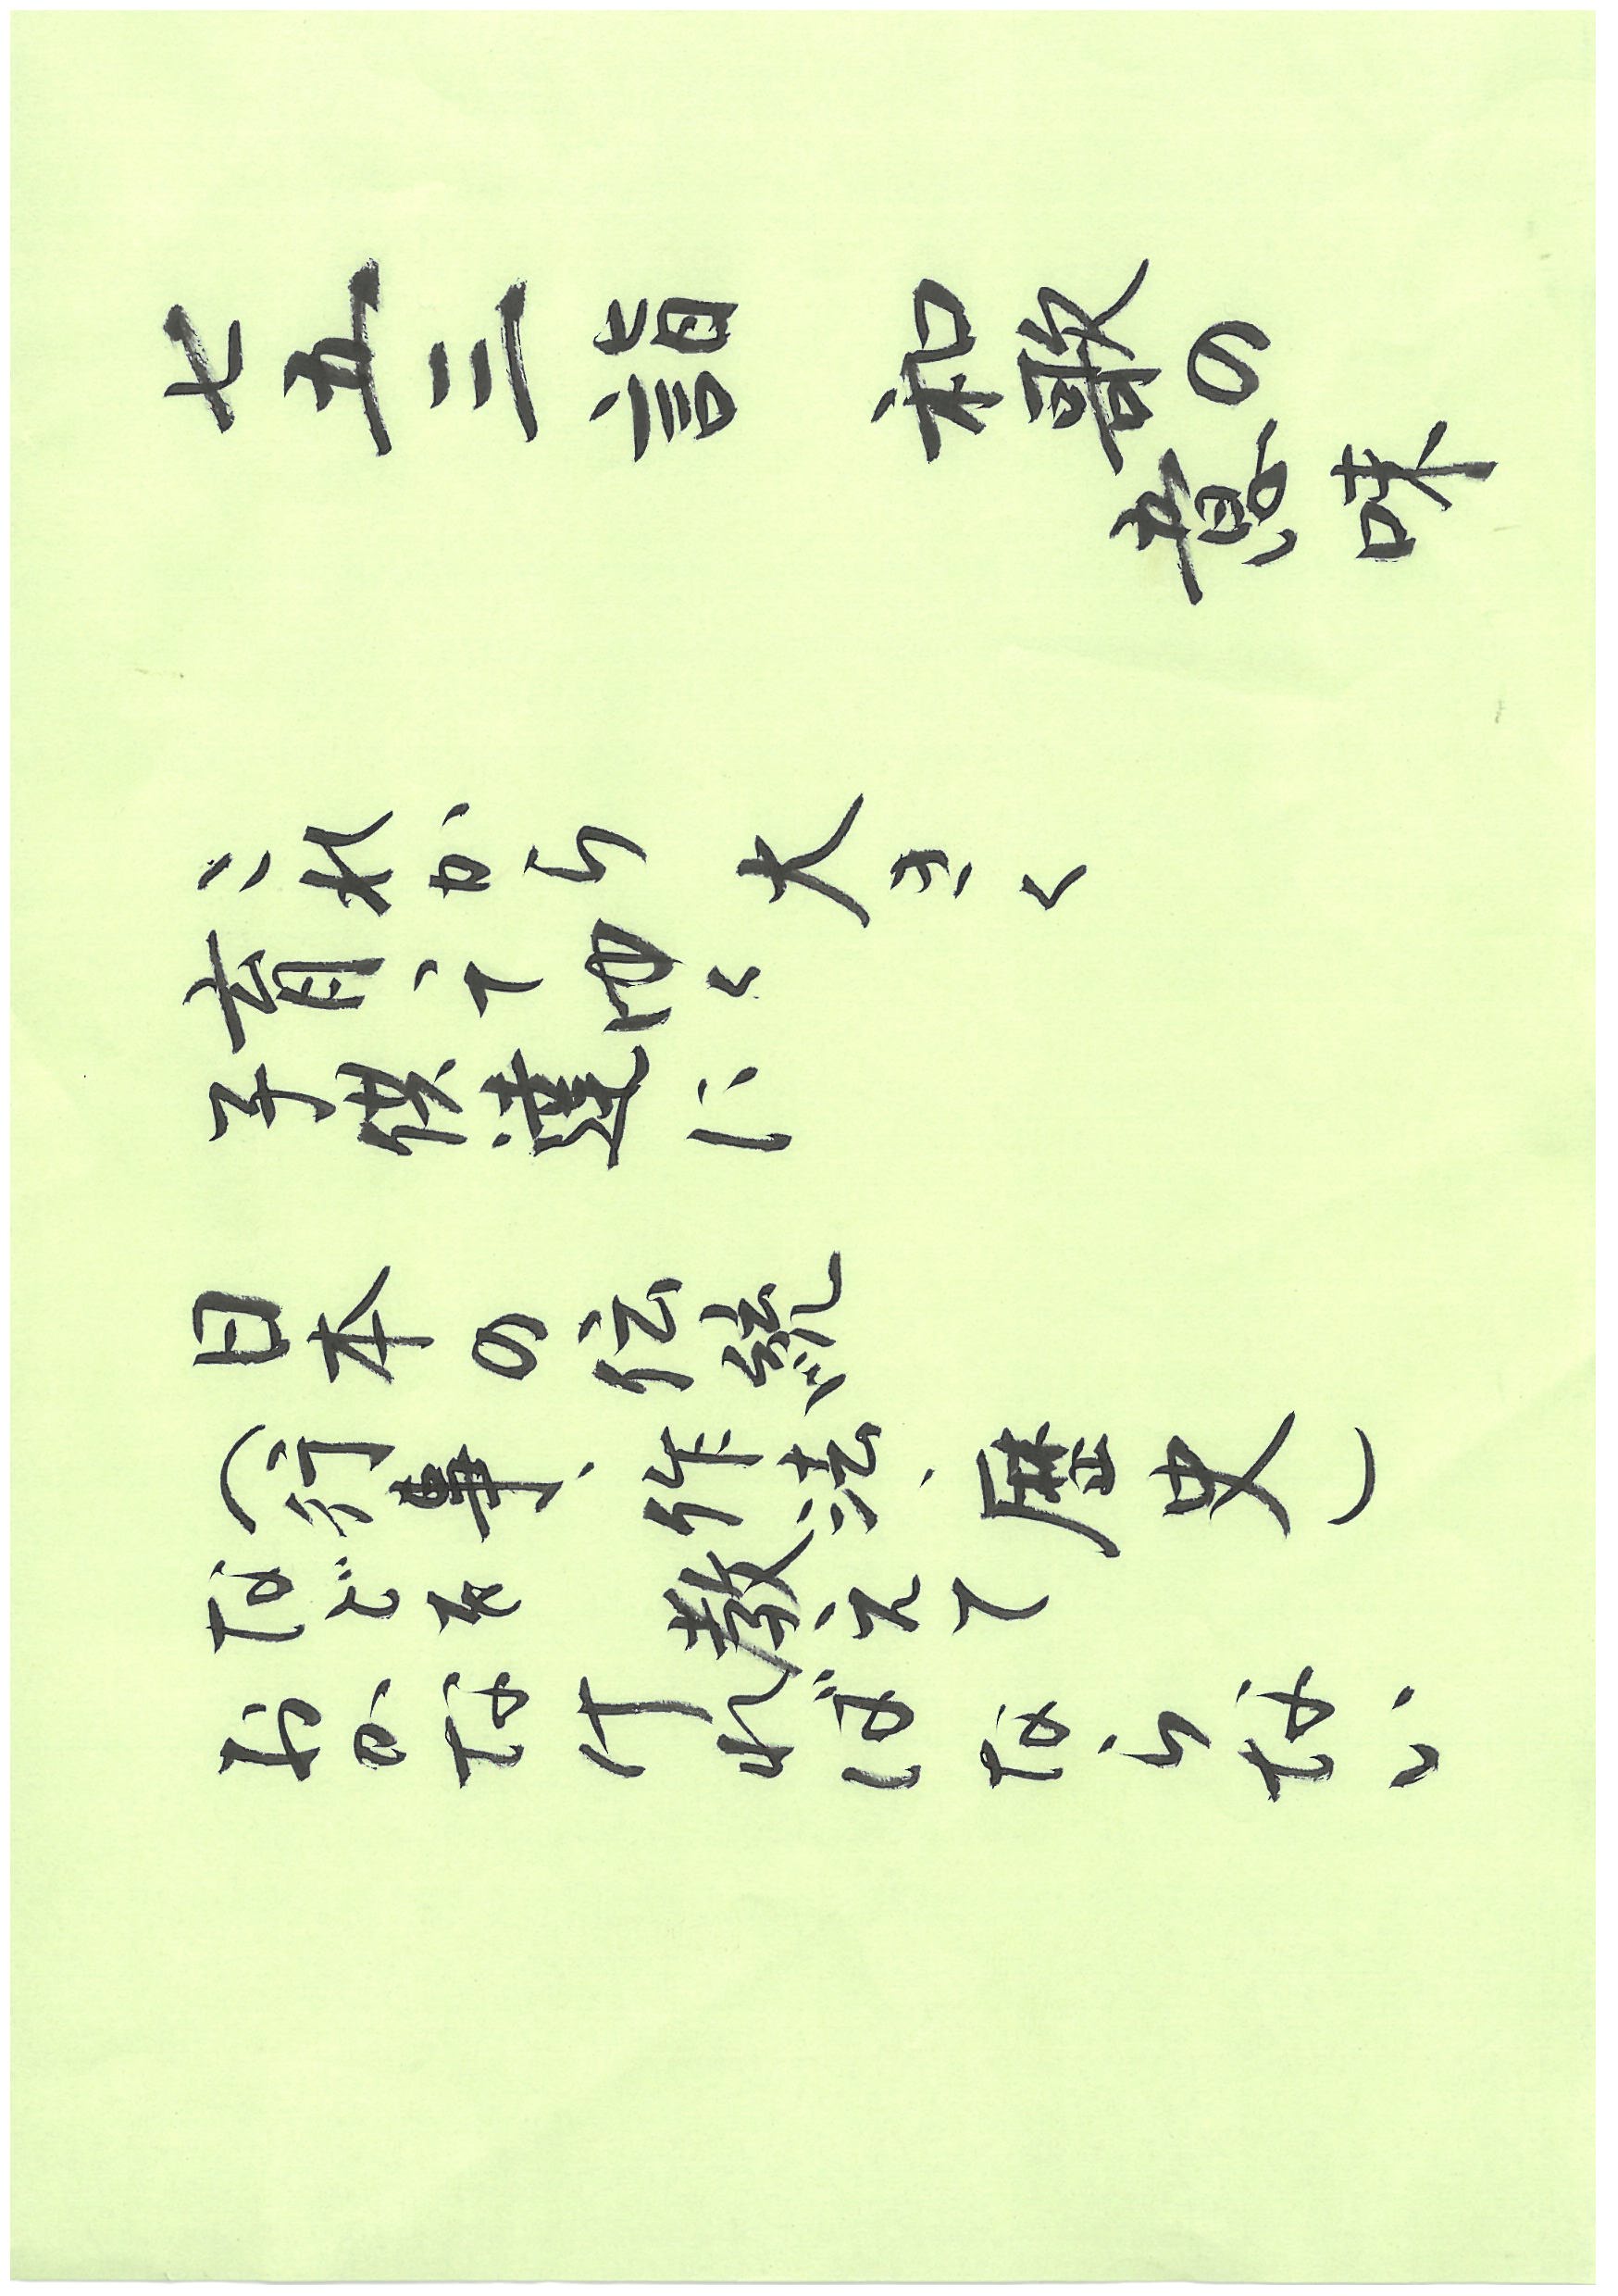 七五三詣　和歌の
意味
これから大きく
育ってゆく
子供達に
日本の伝統
（行事、作法、歴史）
などを　教えて
おかなければならない